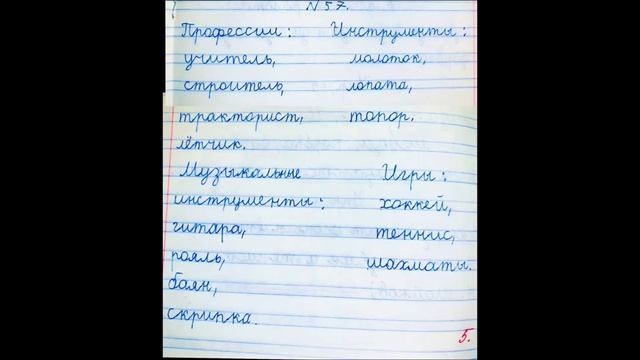 N 57.
Профессии: Инструменты:
учитель, молоток,
строитель, лопата,
тракторист, топор.
лётчик.
Музыкальные Игры:
инструменты: хоккей,
гитара, теннис,
рояль, шахматы.
баян,
скрипка.
5.